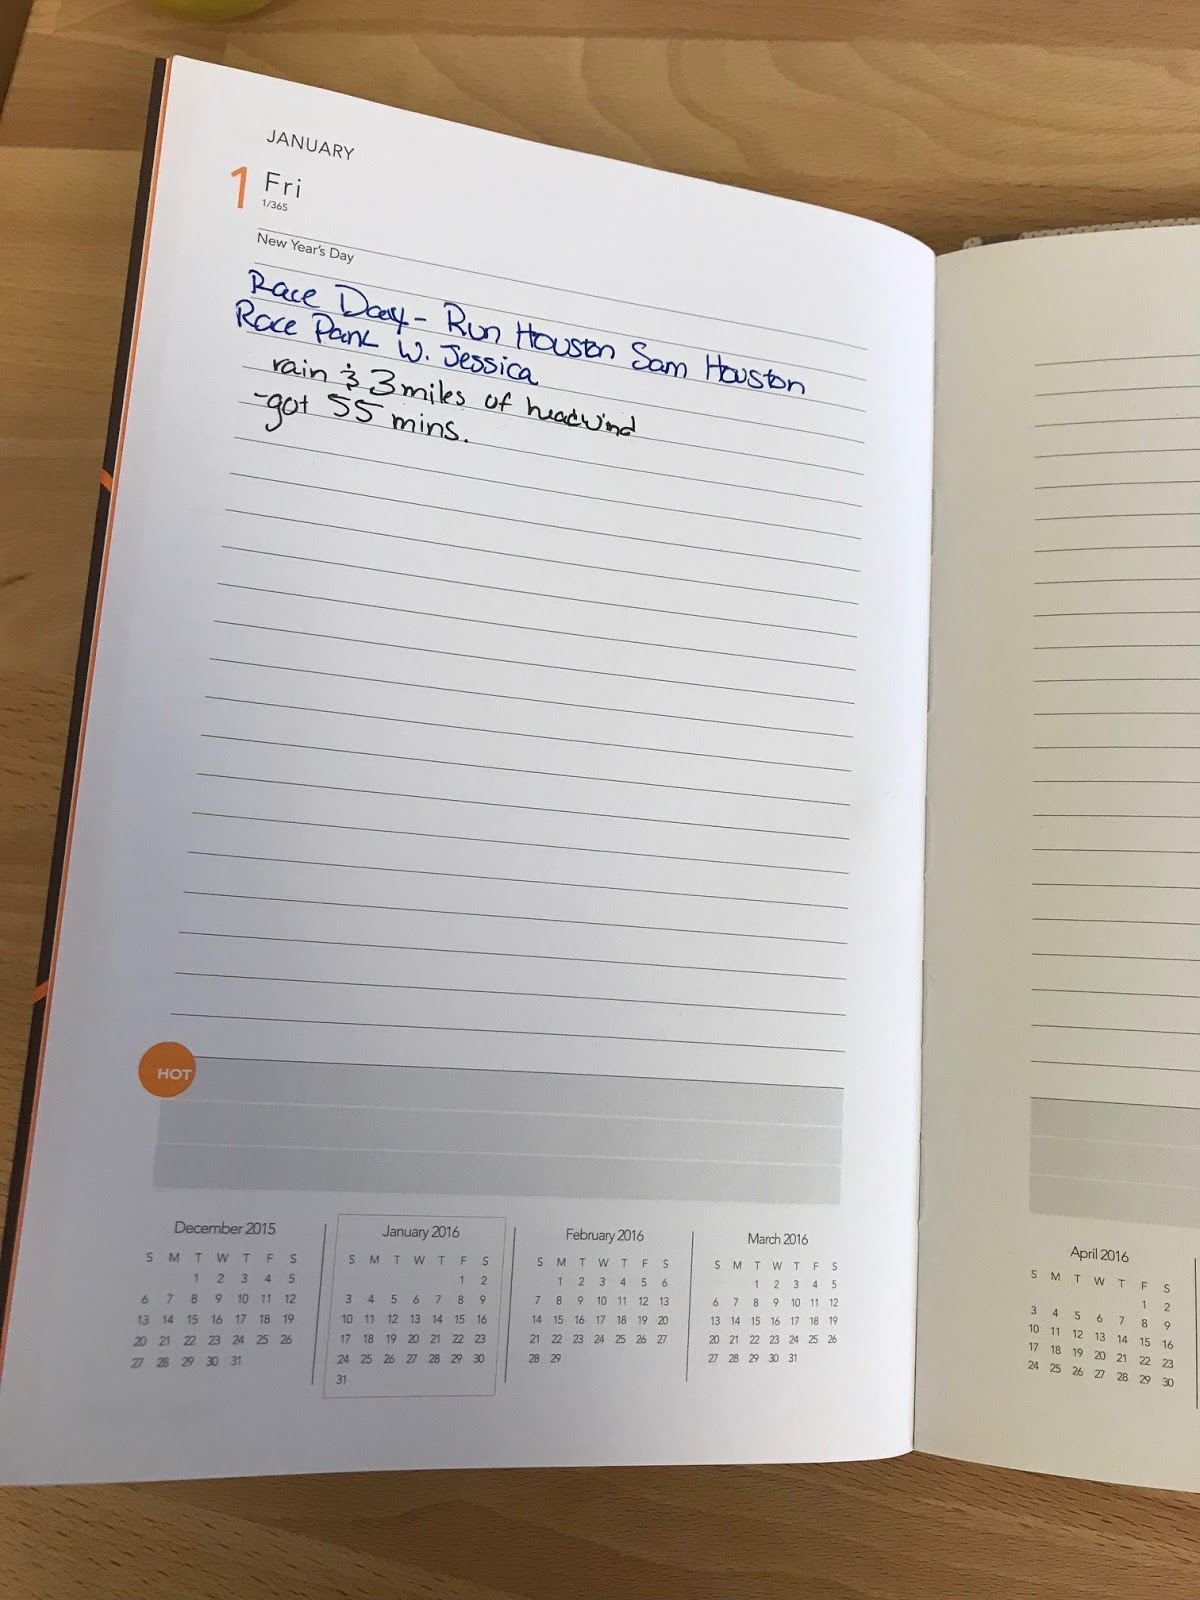 JANUARY
1 Fri
1/365
New Year's Day
Race Day - Run Houston Sam Houston
Race Park W. Jessica
rain & 3 miles of headwind
-got 55 mins.
HOT
December 2015
S M T W T F S
1 2 3 4 5
6 7 8 9 10 11 12
13 14 15 16 17 18 19
20 21 22 23 24 25 26
27 28 29 30 31
January 2016
S M T W T F S
1 2
3 4 5 6 7 8 9
10 11 12 13 14 15 16
17 18 19 20 21 22 23
24 25 26 27 28 29 30
31
February 2016
S M T W T F S
1 2 3 4 5 6
7 8 9 10 11 12 13
14 15 16 17 18 19 20
21 22 23 24 25 26 27
28 29
March 2016
S M T W T F S
1 2 3 4 5
6 7 8 9 10 11 12
13 14 15 16 17 18 19
20 21 22 23 24 25 26
27 28 29 30 31
April 2016
S M T W T F S
1 2
3 4 5 6 7 8 9
10 11 12 13 14 15 16
17 18 19 20 21 22 23
24 25 26 27 28 29 30